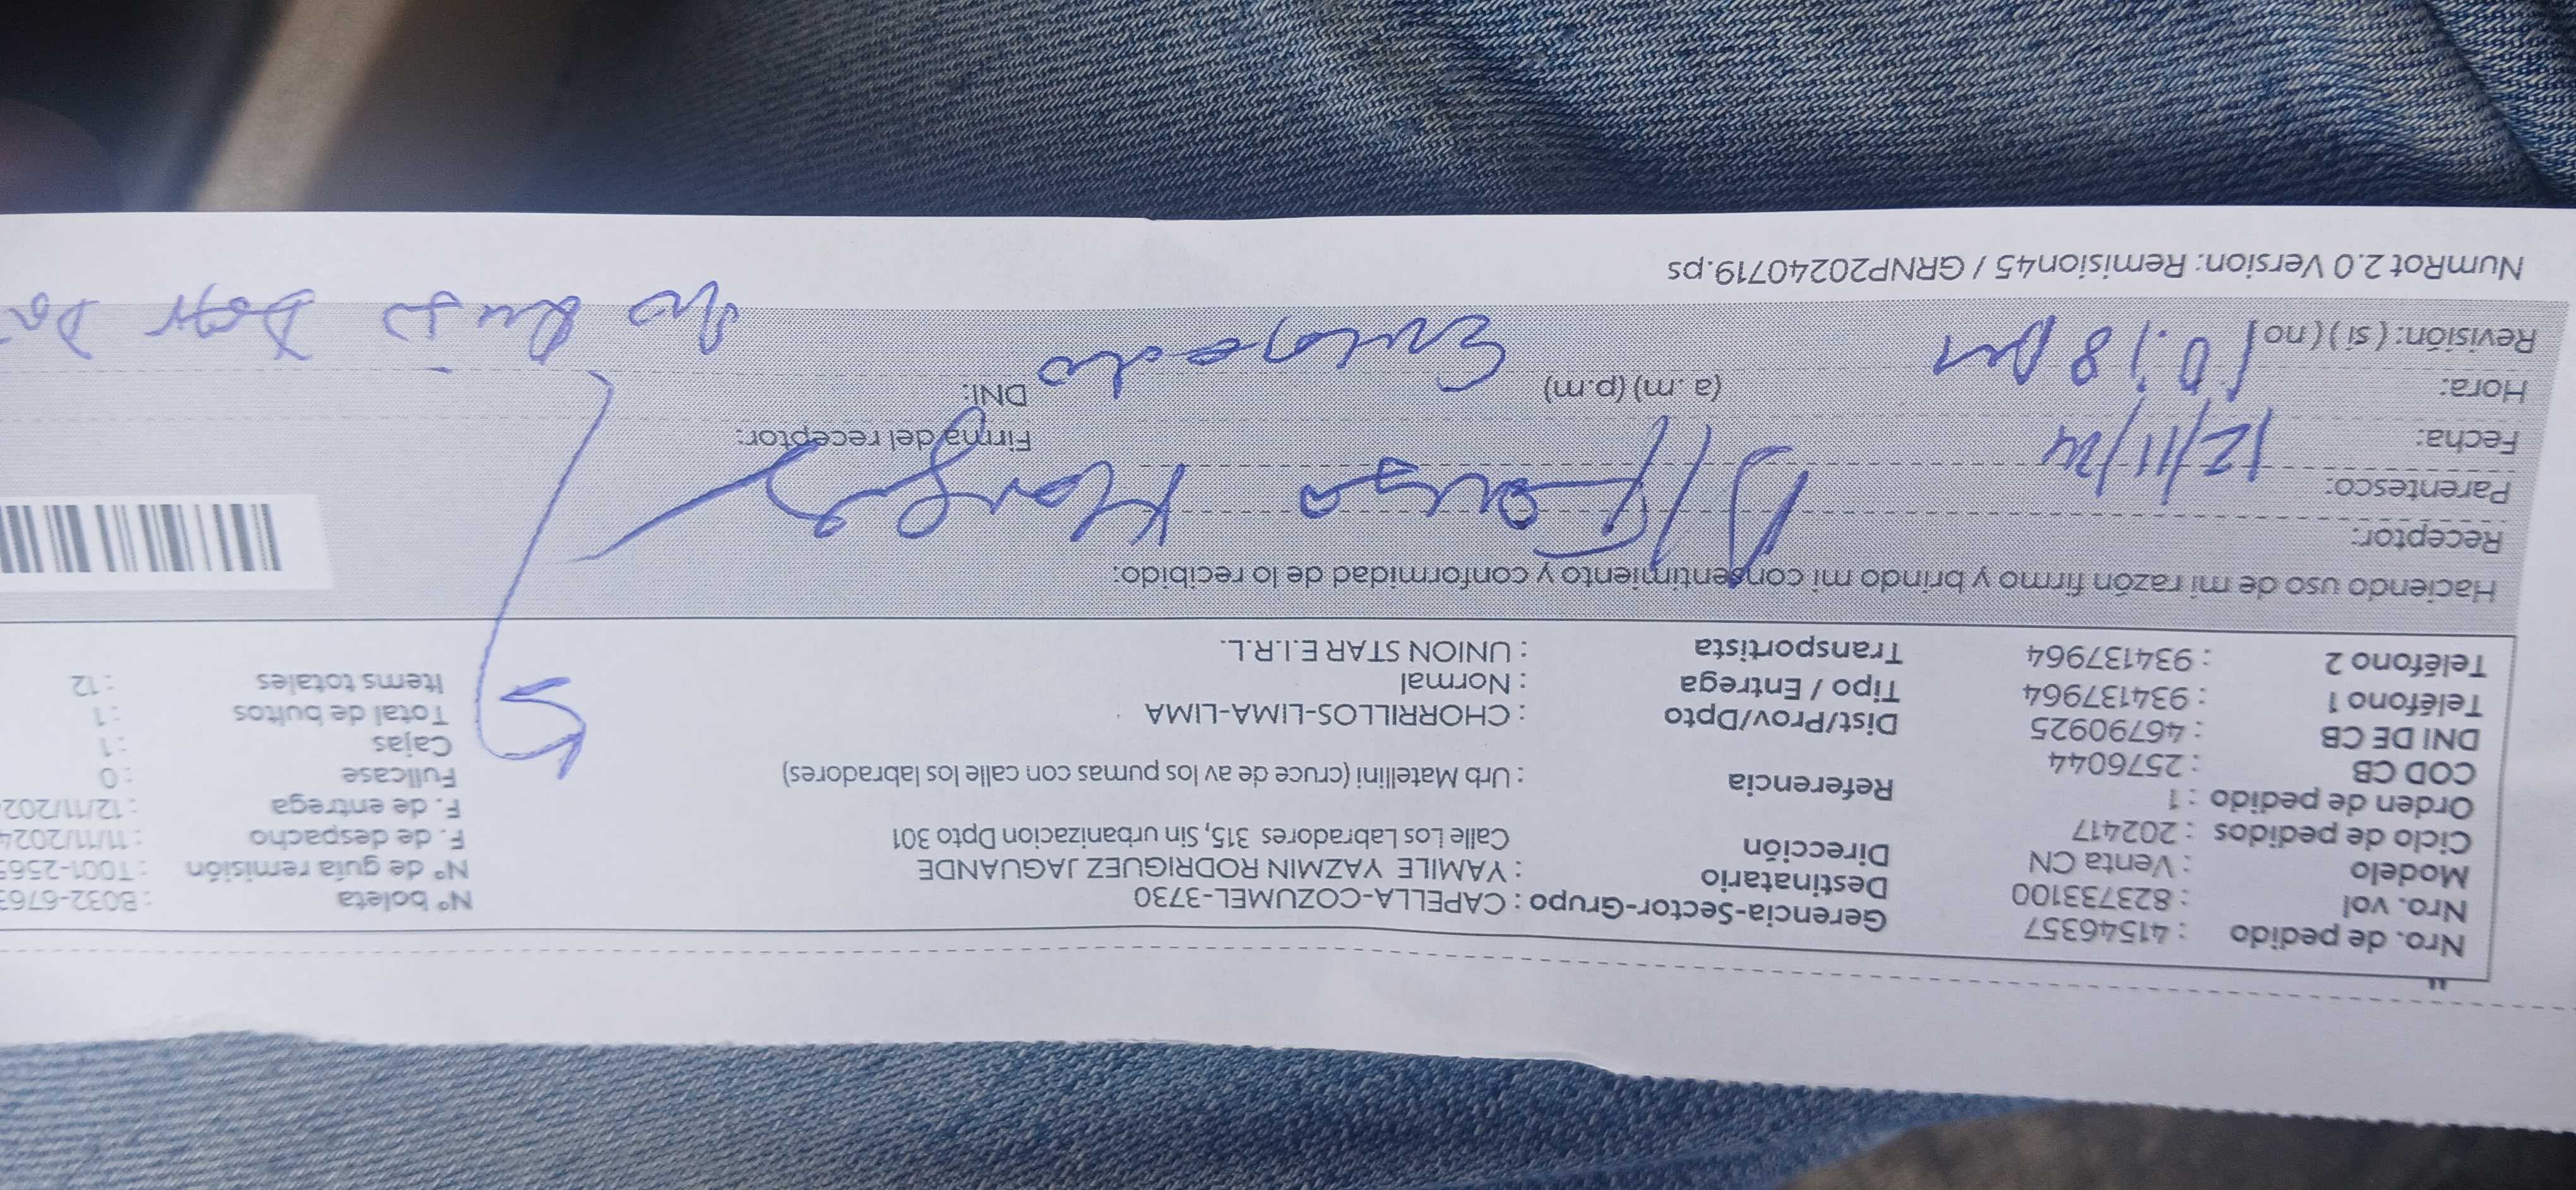 Nro. de pedido : 41546357
Nro. vol : 823733100
Modelo : Venta CN
Ciclo de pedidos : 202417
Orden de pedido : 1
COD CB : 2576044
DNI DE CB : 46790925
Teléfono 1 : 934137964
Teléfono 2 : 934137964
Gerencia-Sector-Grupo : CAPELLA-COZUMEL-3730
Destinatario : YAMILE YAZMIN RODRIGUEZ JAGUANDE
Dirección Calle Los Labradores 315, Sin urbanizacion Dpto 301
Referencia : Urb Matellini (cruce de av los pumas con calle los labradores)
Dist/Prov/Dpto : CHORRILLOS-LIMA-LIMA
Tipo / Entrega : Normal
Transportista : UNION STAR E.I.R.L.
N° boleta : B032-6763
N° de guía remisión : T001-2565
F. de despacho : 11/11/2024
F. de entrega : 12/11/202
Fullcase : 0
Cajas : 1
Total de bultos : 1
Items totales : 12
Haciendo uso de mi razón firmo y brindo mi consentimiento y conformidad de lo recibido:
Receptor:
Parentesco:
Fecha: 12/11/24
Firma del receptor:
Hora: (a. m) (p.m) DNI:
Revisión: ( si ) ( no ) 10:18
Encargado
No quiso
NumRot 2.0 Version: Remision45 / GRNP20240719.ps